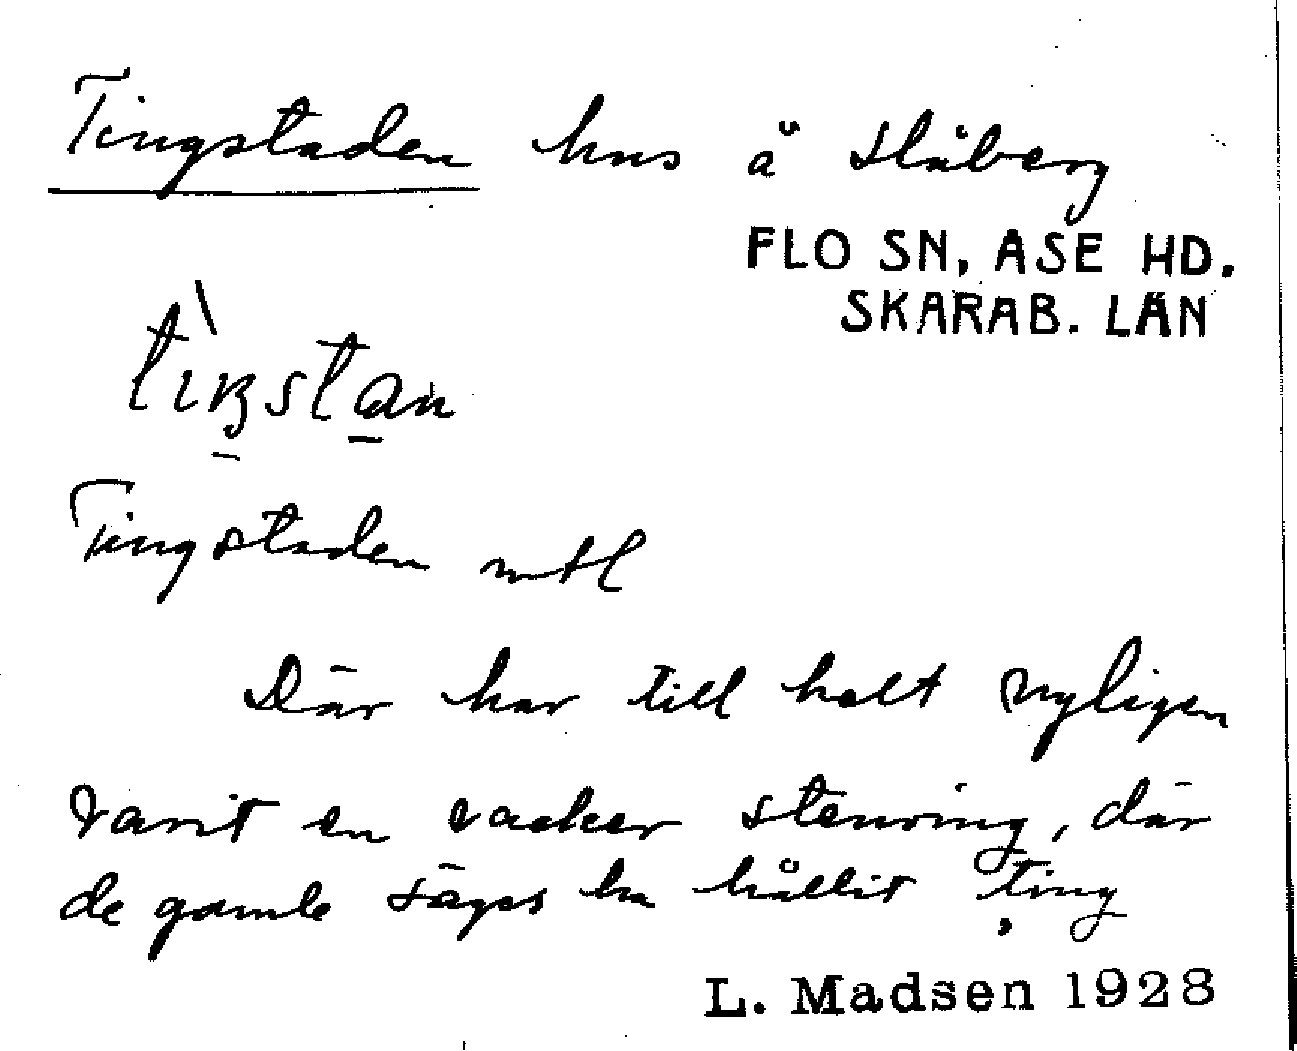 Tingstaden hus å Håberg
FLO SN, ASE HD.
SKARAB. LÄN
Tingstaden mtl
Där har till helt nyligen
varit en vacker stenring, där
de gamle säges ha hållit ting
L. Madsen 1928